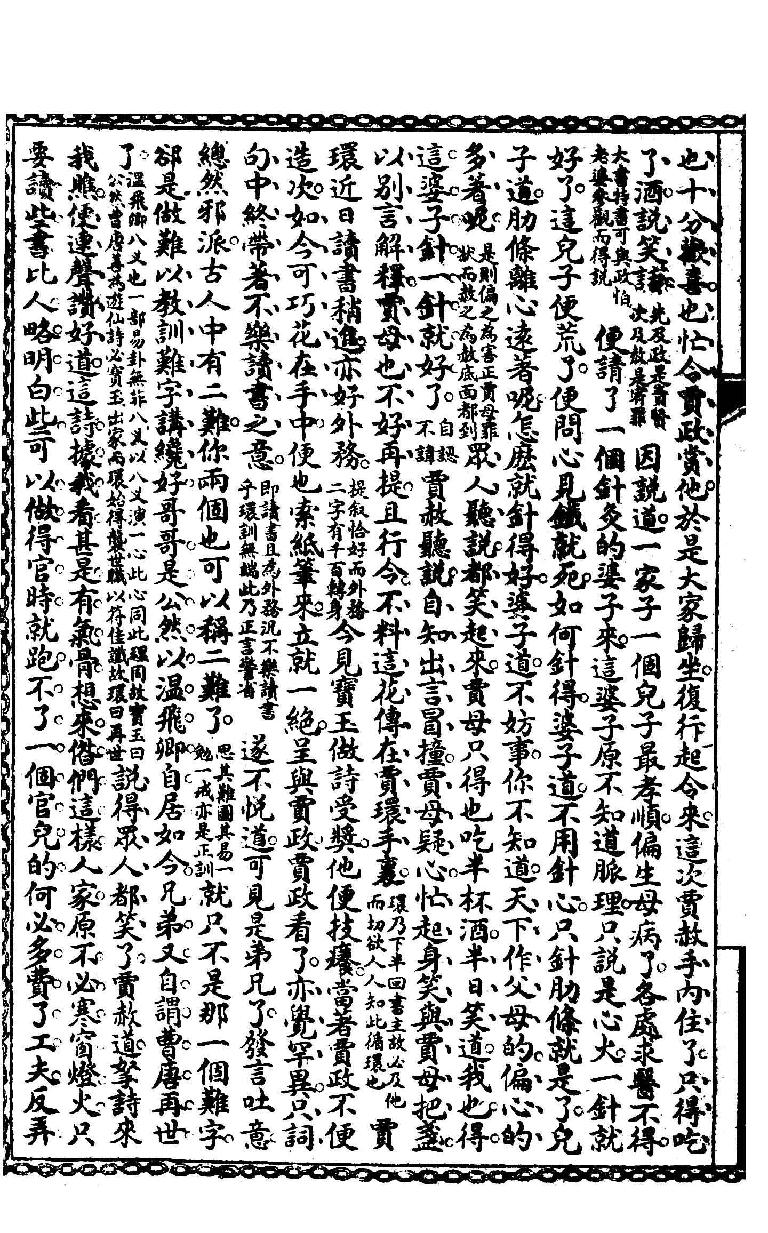 也十分歡喜也忙令賈政賞他於是大家歸坐復行起令來這次賈赦手內住了只得吃
了酒說笑話先及政是貴賢次及赦是貴罪因說道一家子一個兒子最孝順偏生母病了各處求醫不得
大書特書可與政怕老婆參觀而得說便請了一個針灸的婆子來這婆子原不知道脈理只說是心火一針就
好了這兒子便荒了便問心見鐵就死如何針得婆子道不用針心只針肋條就是了兒
子道肋條離心遠著呢怎麽就針得好婆子道不妨事你不知道天下作父母的偏心的
多著呢是則偏之為害正賈母罪狀而赦之為赦底面都到眾人聽說都笑起來賈母只得也吃半杯酒半日笑道我也得
這婆子針一針就好了自認不諱賈赦聽說自知出言冒撞賈母疑心忙起身笑與賈母把盞
以別言解釋賈母也不好再提且行令不料這花傳在賈環手裏環乃下半回書主故必及他而切欲人人知此循環也賈
環近日讀書稍進亦好外務提叙恰好而外務二字有千百轉身今見寶玉做詩受獎他便技癢當著賈政不便
造次如今可巧花在手中便也索紙筆來立就一絕呈與賈政賈政看了亦覺罕異只詞
句中終帶著不樂讀書之意即讀書且為外務況不樂讀書乎環訓無端此乃正言警省遂不悅道可見是弟兄了發言吐意
總然邪派古人中有二難你兩個也可以稱二難了思其難圖其易一勉一戒亦是正訓就只不是那一個難字
卻是做難以教訓難字講纔好哥哥是公然以溫飛卿自居如今兄弟又自謂曹唐再世
了溫飛卿八义也一部易卦無非八义以八义演一心此心同此理同故寶玉曰公然曹唐善為遊仙詩必寶玉出家而環始得襲世職以符佳讖故環曰再世說得眾人都笑了賈赦道拏詩來
我瞧便連聲讚好道這詩據我看甚是有氣骨想來偺們這樣人家原不必寒窗燈火只
要讀些書比人畧明白些可以做得官時就跑不了一個官兒的何必多費了工夫反弄